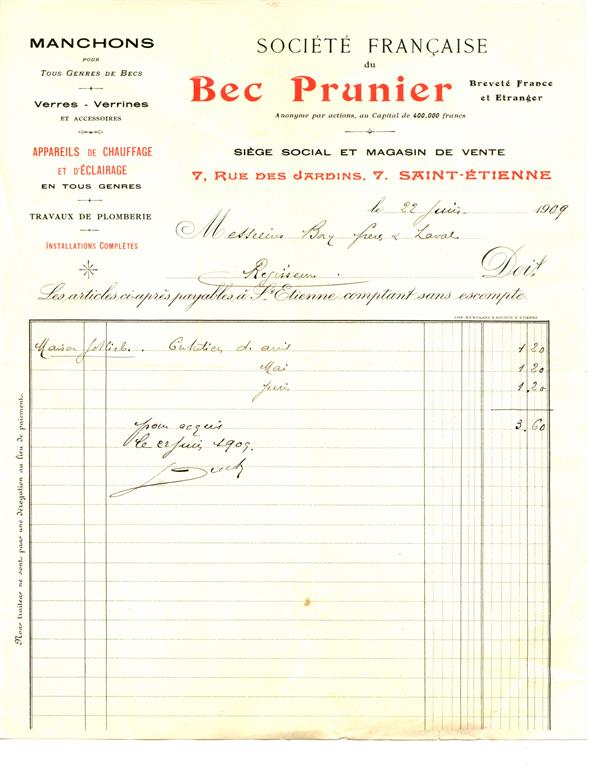 MANCHONS
POUR
TOUS GENRES DE BECS
Verres - Verrines
ET ACCESSOIRES
APPAREILS DE CHAUFFAGE
ET D'ÉCLAIRAGE
EN TOUS GENRES
TRAVAUX DE PLOMBERIE
INSTALLATIONS COMPLÈTES
SOCIÉTÉ FRANÇAISE
du
Bec Prunier
Breveté France
et Etranger
Anonyme par actions, au Capital de 400.000 francs
SIÈGE SOCIAL ET MAGASIN DE VENTE
7, RUE DES JARDINS, 7. SAINT-ÉTIENNE
le 22 juin 1909
Messieurs Bory frères & Laval
Régisseurs. Doit
Les articles ci-après payables à St Etienne comptant sans escompte.
Maison . Entretien d avril 1 20
Mai 1 20
Juin 1.20
3.60
pour acquis
le 22 juin 1909.
Nos traites ne sont pas une dérogation au lieu de paiement.